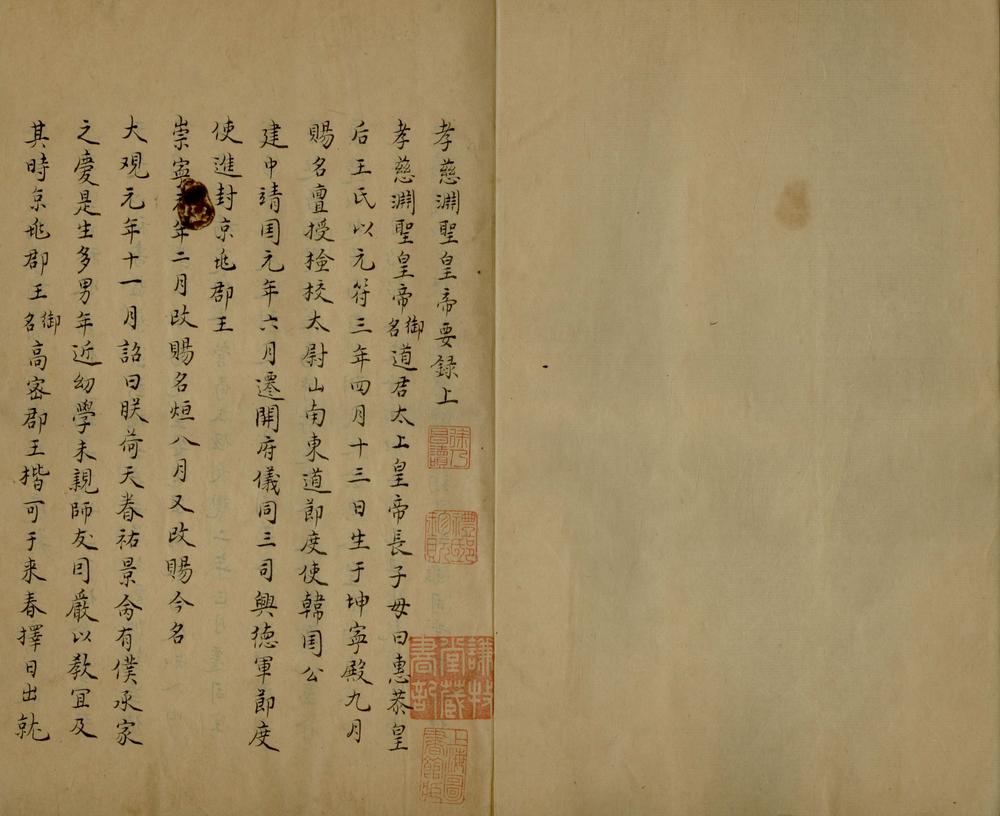 孝慈淵聖皇帝要錄上
孝慈淵聖皇帝御名道君太上皇帝長子母曰惠恭皇
后王氏以元符三年四月十三日生于坤寧殿九月
賜名亶授撿校太尉山南東道節度使韓国公
建中靖国元年六月遷開府儀同三司興徳軍節度
使進封京兆郡王
崇寧年二月改賜名烜八月又改賜今名
大观元年十一月詔曰朕荷天眷祐景侖有僕承家
之慶是生多男年近幼學未親師友囙嚴以教冝及
其時京兆郡王御名高密郡王楷可于来春擇日出就
謙牧堂藏書記
上海圖書館藏